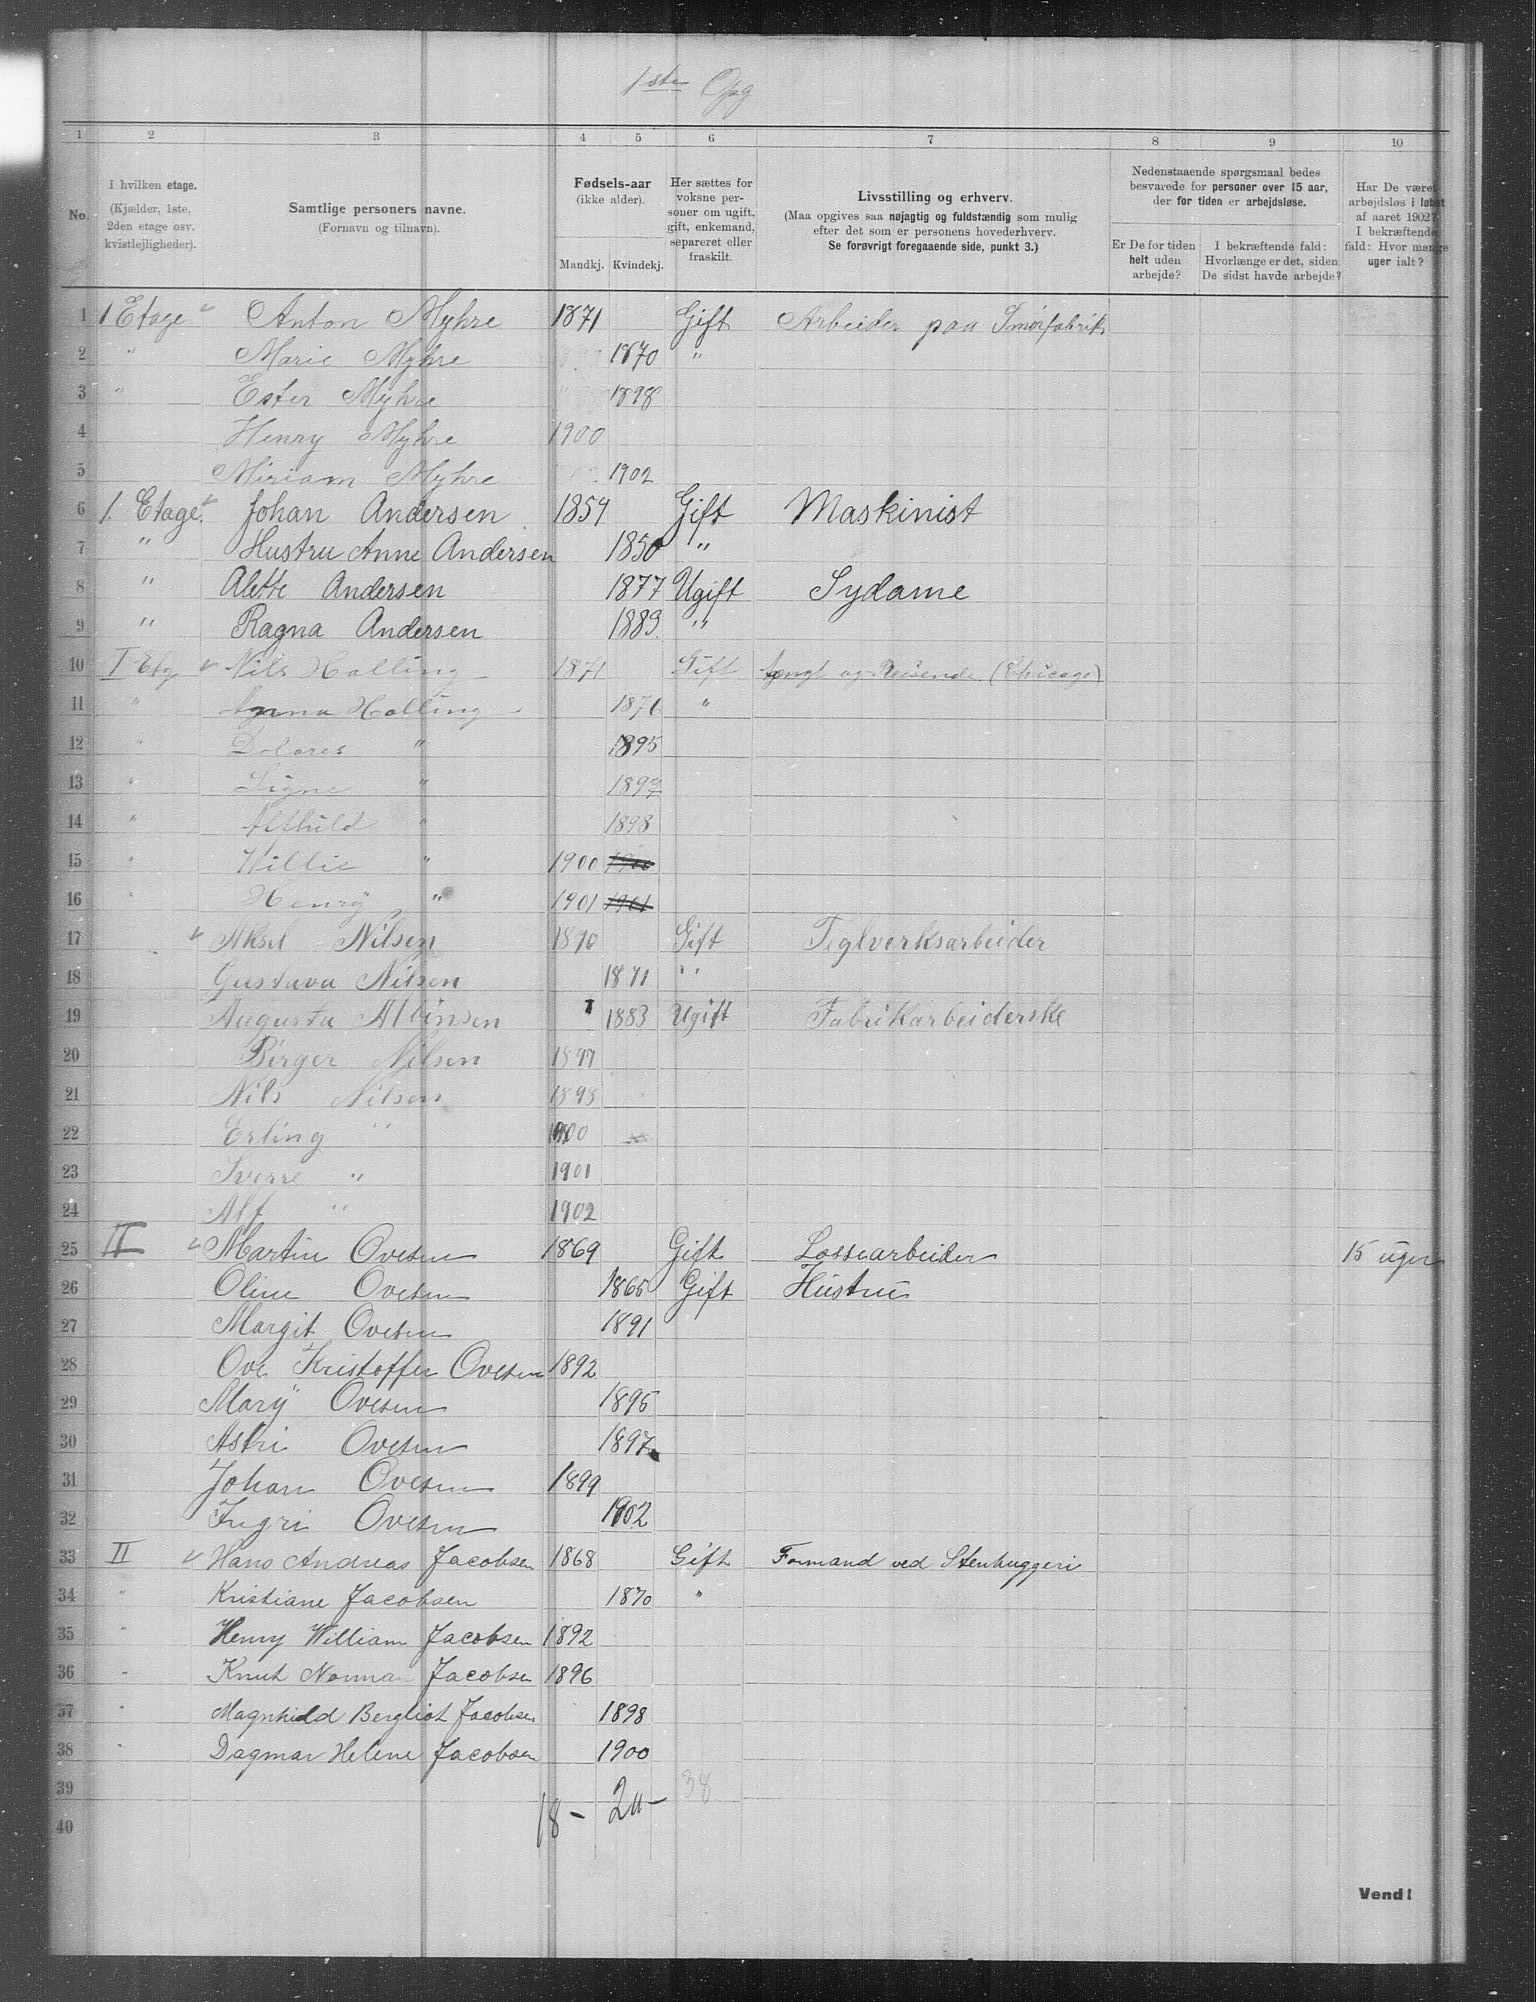 1ste Opg
1 2 3 4 5 6 7 8 9 10
No.
I hvilken etage.
(Kjælder, 1ste,
2den etage osv.
kvistlejligheder).
Samtlige personers navne.
(Fornavn og tilnavn).
Fødsels-aar
(ikke alder).
Mandkj. Kvindekj.
Her sættes for
voksne per-
soner om ugift,
gift, enkemand,
separeret eller
fraskilt.
Livsstilling og erhverv.
(Maa opgives saa nøjagtig og fuldstændig som mulig
efter det som er personens hovederhverv.
Se forøvrigt foregaaende side, punkt 3.)
Nedenstaaende spørgsmaal bedes
besvarede for personer over 15 aar,
der for tiden er arbejdsløse.
Er De for tiden
helt uden
arbejde?
I bekræftende fald:
Hvorlænge er det, siden
De sidst havde arbejde?
Har De været
arbejdsløs i løbet
af aaret 1902?
I bekræftende
fald: Hvor mange
uger ialt?
1 1 Etage Anton Myhre 1871 Gift Arbeider paa Smørfabrik
2 " Marie Myhre 1870 "
3 " Ester Myhre 1898
4 Henry Myhre 1900
5 Miriam Myhre 1902
6 1. Etage. Johan Andersen 1854 Gift Maskinist
7 " Hustru Anne Andersen 1850 "
8 " Alette Andersen 1877 Ugift Sydame
9 " Ragna Andersen 1889. "
10 I Etg Nils Halling 1871 Gift Agent og Reisende (Chicago)
11 " Anna Halling 1871 "
12 " Dolores " 1895
13 " Signe " 1897
14 " Alfhild " 1898
15 " Willie " 1900 1900
16 " Henry " 1901 1901
17 Aksel Nilsen 1870 Gift Teglverksarbeider
18 Gustava Nilsen 1871 "
19 Augusta Albinsen 1883 Ugift Fabrikarbeiderske
20 Birger Nilsen 1897
21 Nils Nilsen 1898
22 Erling " 1900
23 Sverre " 1901
24 Alf " 1902
25 II Martin Ovesen 1869 Gift Lossearbeider 15 uger
26 Oline Ovesen 1865 Gift Hustru
27 Margit Ovesen 1891
28 Ove Kristoffer Ovesen 1892
29 Mary Ovesen 1895
30 Astri Ovesen 1897
31 Johan Ovesen 1899
32 Ingri Ovesen 1902
33 II Hans Andreas Jacobsen 1868 Gift Formand ved Stenhuggeri
34 " Kristiane Jacobsen 1870 "
35 " Henry William Jacobsen 1892
36 " Knut Norman Jacobsen 1896
37 " Magnhild Bergliot Jacobsen 1898
38 " Dagmar Helene Jacobsen 1900
39 18 - 20 - 38
40
Vend!